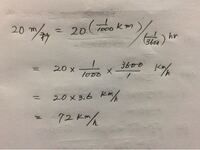 20 m/ = 20 (1/1000 km) / (1/3600) hr
= 20 × 1/1000 × 3600/1 km/h
= 20 × 3.6 km/h
= 72 km/h